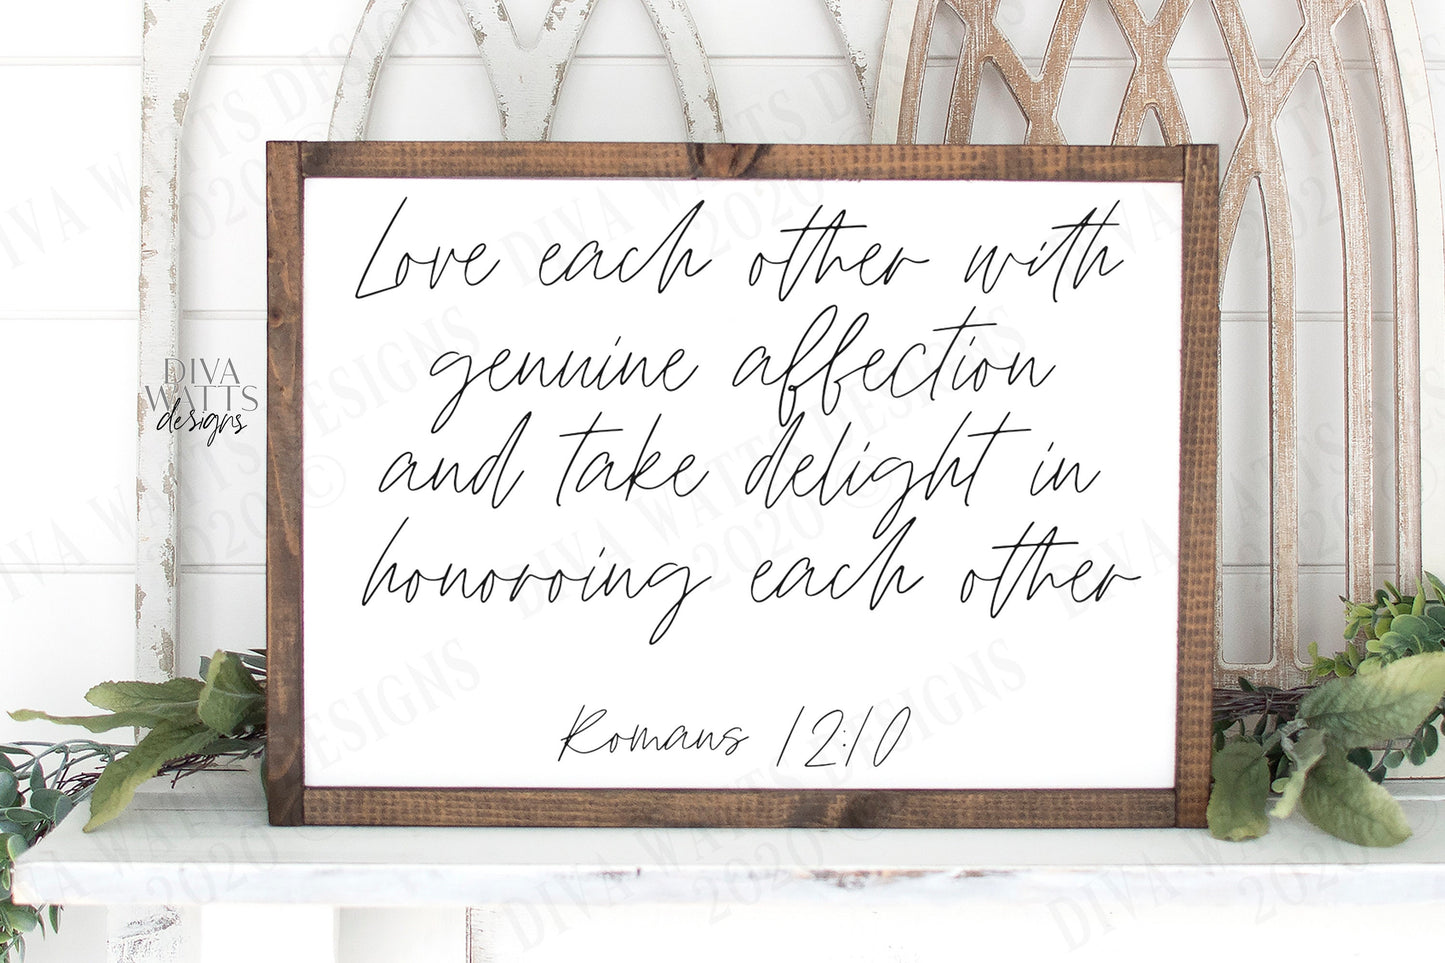 Love each other with
genuine affection
and take delight in
honoring each other
Romans 12:10
DIVA
WATTS
designs
DIVA WATTS DESIGNS
© 2020